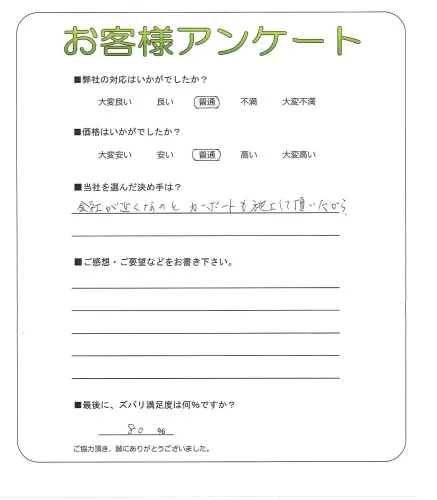 お客様アンケート
■弊社の対応はいかがでしたか？
大変良い 良い 普通 不満 大変不満
■価格はいかがでしたか？
大変安い 安い 普通 高い 大変高い
■当社を選んだ決め手は？
会社が近くなのと カーポートも施工して頂いたから
■ご感想・ご要望などをお書き下さい。
■最後に、ズバリ満足度は何%ですか？
80 %
ご協力頂き、誠にありがとうございました。